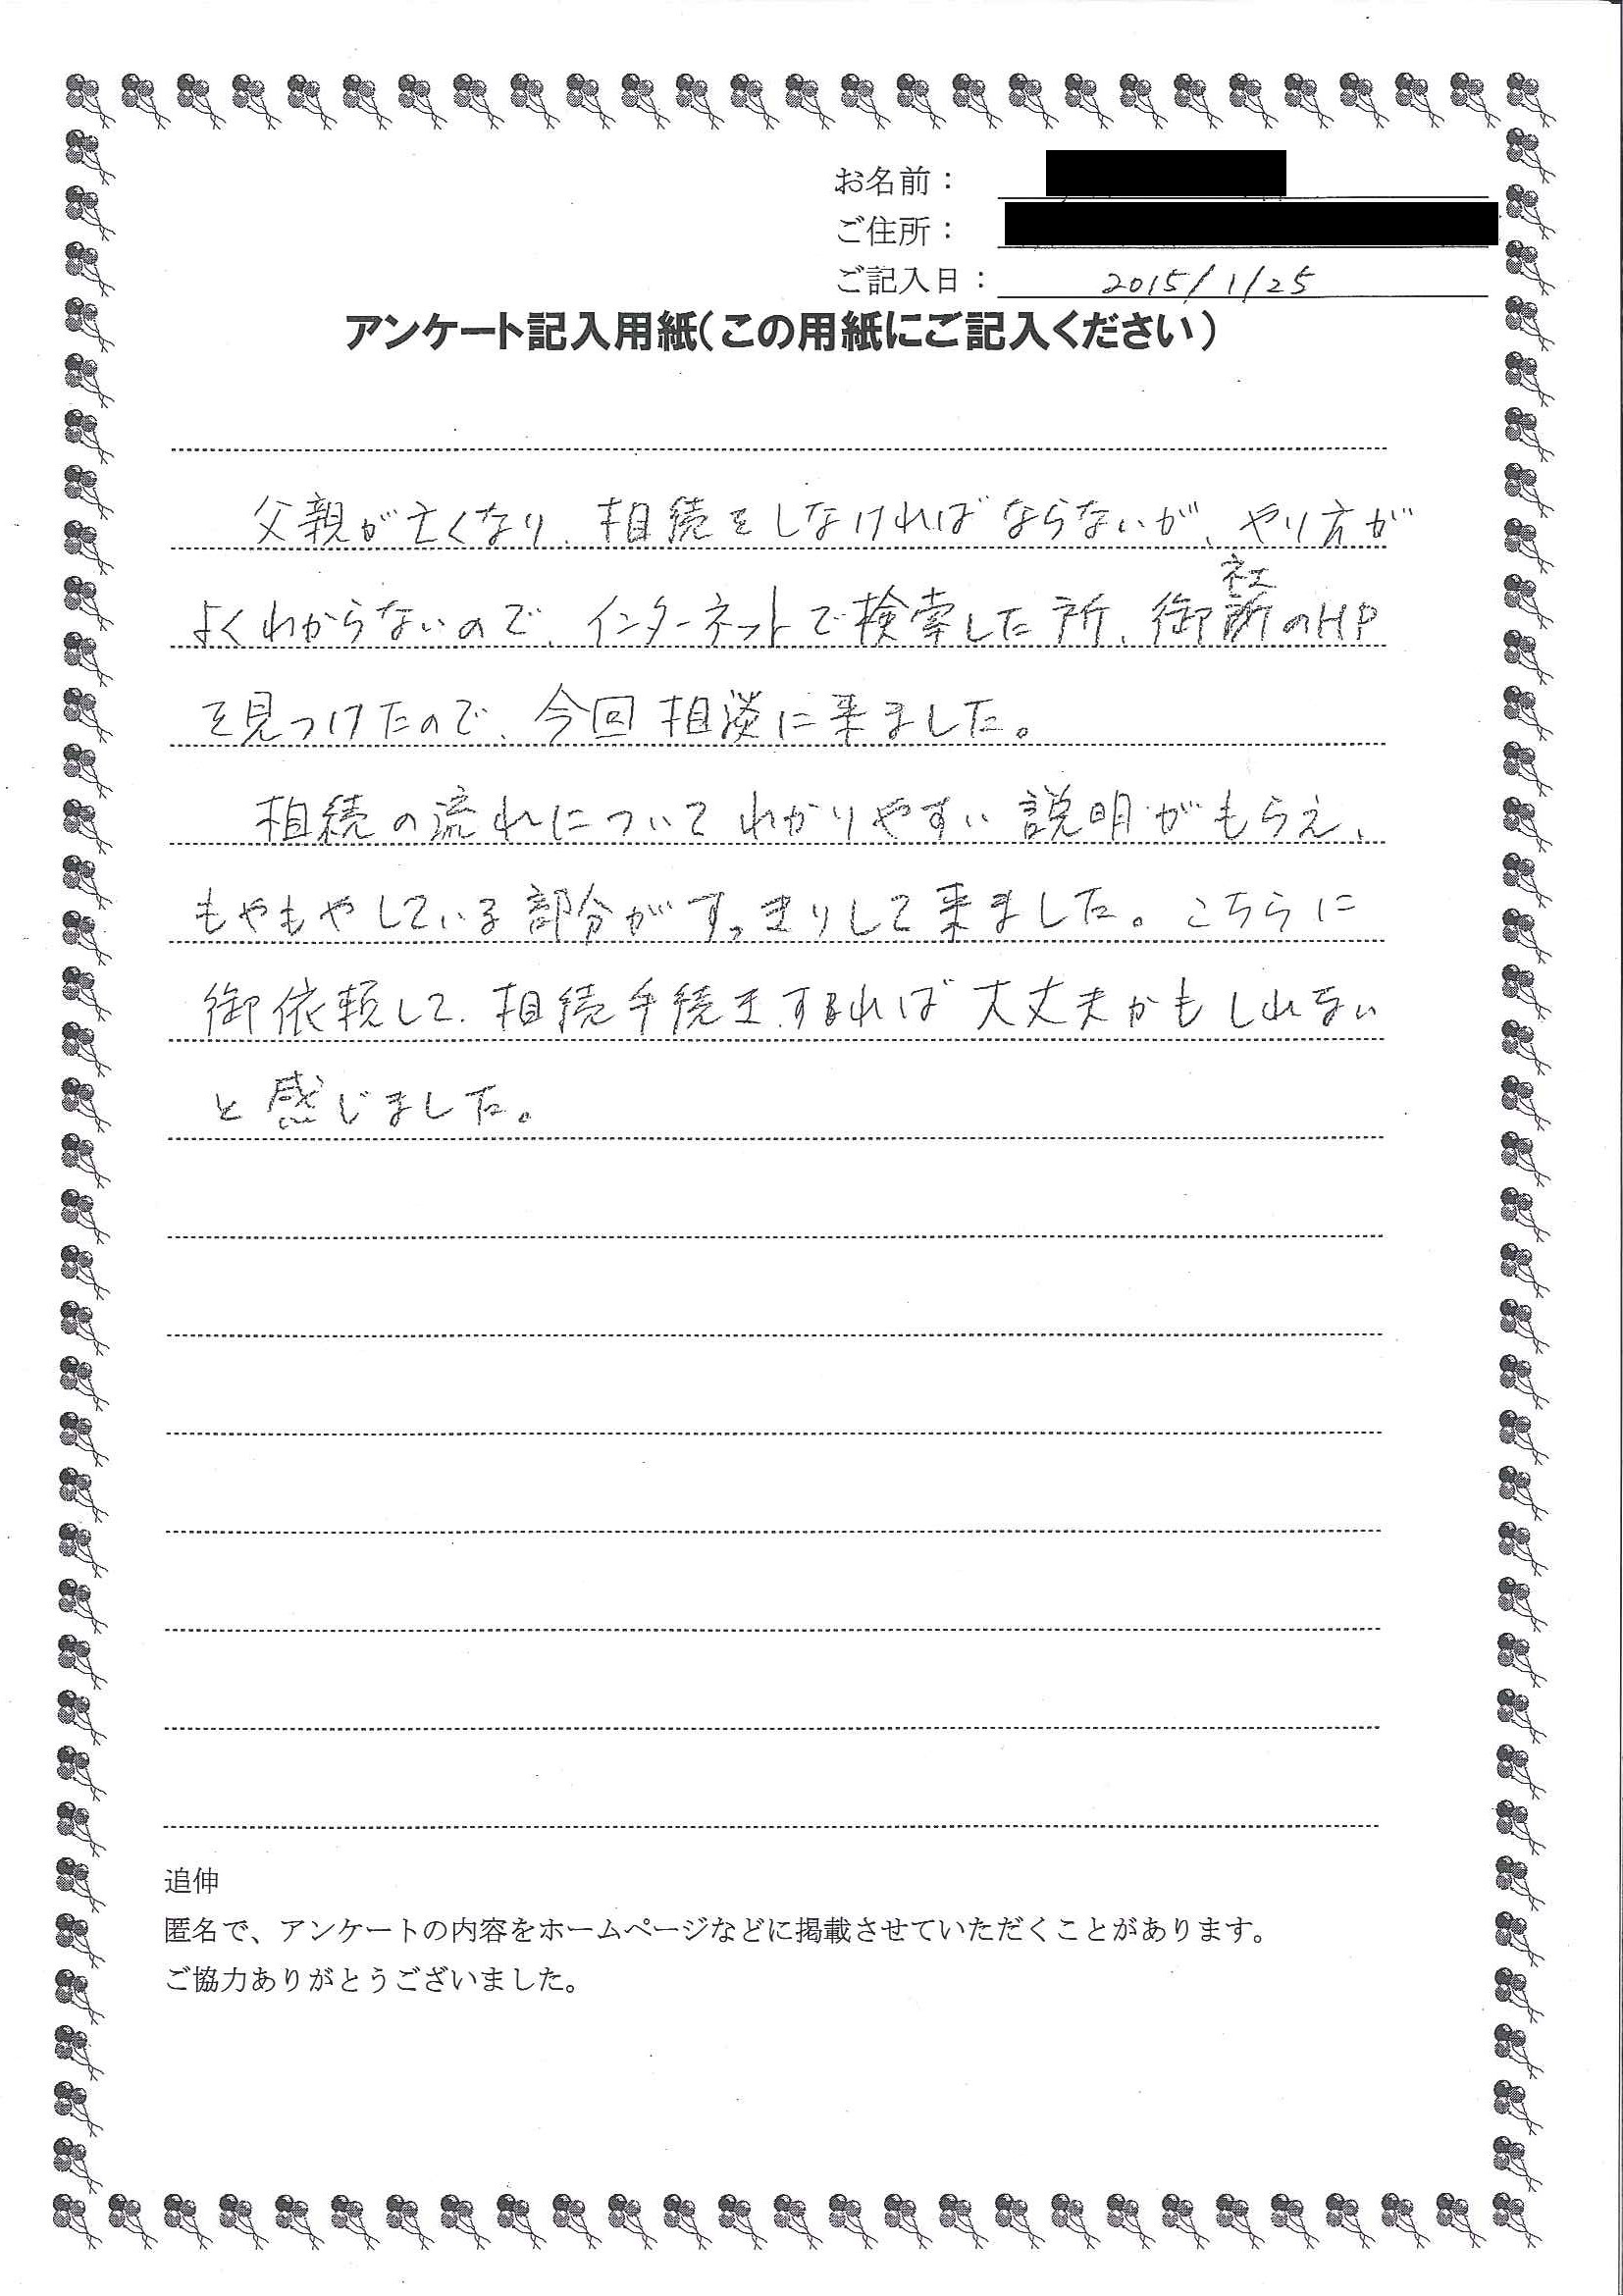 お名前：
ご住所：
ご記入日： 2015/1/25
アンケート記入用紙（この用紙にご記入ください）
父親が亡くなり、相続をしなければならないが、やり方が
よくわからないので、インターネットで検索した所、御社のHP
を見つけたので、今回相談に来ました。
相続の流れについてわかりやすい説明がもらえ、
もやもやしている部分がすっきりして来ました。こちらに
御依頼して、相続手続きすれば大丈夫かもしれない
と感じました。
追伸
匿名で、アンケートの内容をホームページなどに掲載させていただくことがあります。
ご協力ありがとうございました。